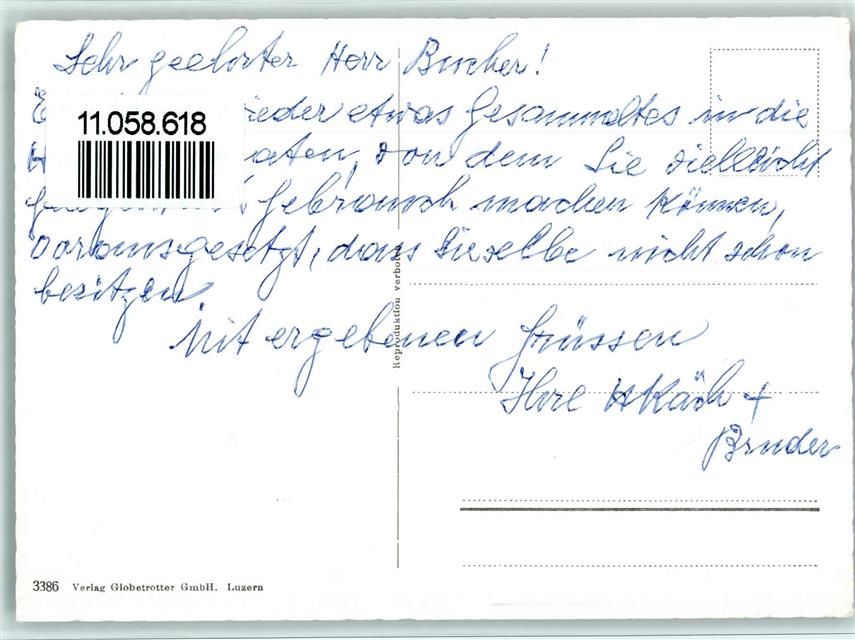 Sehr geehrter Herr Bucher!
wieder etwas Gesammeltes in die
von dem Sie vielleicht
Gebrauch machen können,
vorausgesetzt, dass Sie dieselbe nicht schon
besitzen.
Mit ergebenen Grüssen
Ihre +
Bruder
11.058.618
Reproduktion verboten
3386 Verlag Globetrotter GmbH. Luzern